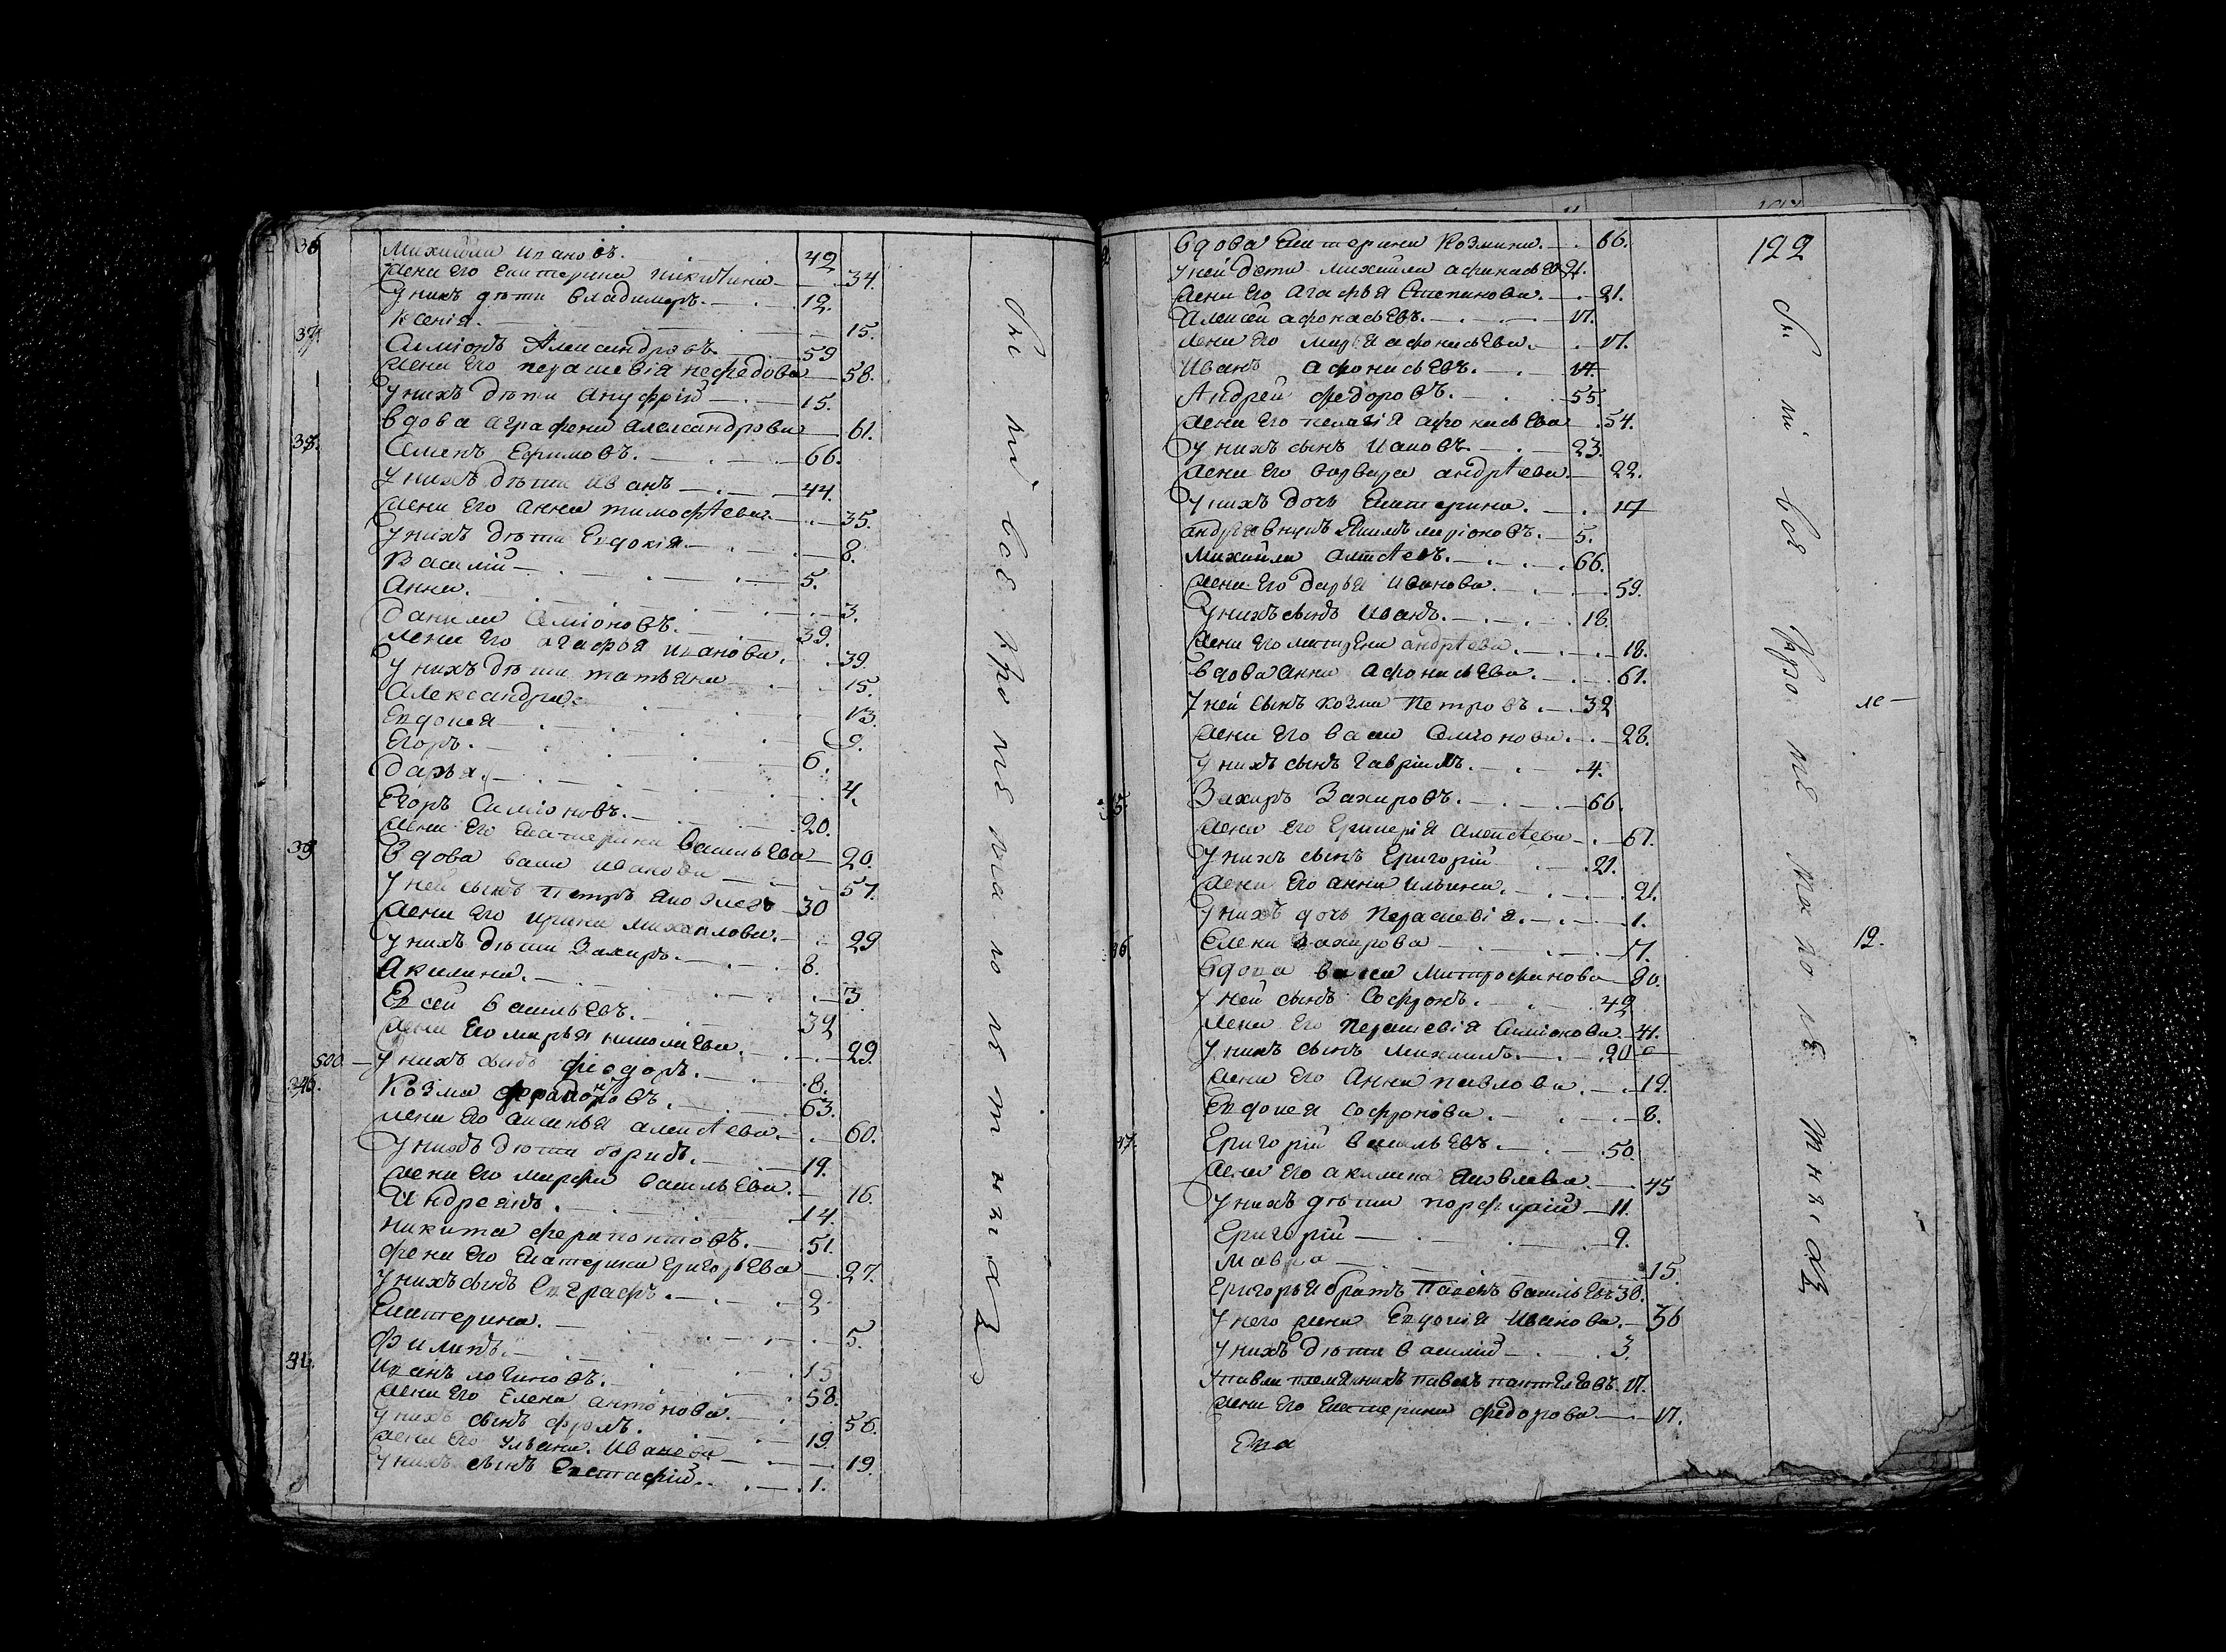 36 Михайла Ивановъ. 42
жена его Екатерина Никитина 34.
у нихъ дѣти Владимиръ. 12.
Ксенія. 15.
37. Симіонъ Александровъ. 59
жена его Параскевія Нефедова 58.
у нихъ дѣти Ануфрій 15.
вдова Аграфена Александрова 61.
38. Семенъ Ефимовъ. 66.
у нихъ дѣти Иванъ 44.
жена его Анна Тимофѣева 35.
у нихъ дѣти Евдокія 8.
Василій 5.
Анна. 3.
Данила Симіоновъ. 39.
жена его Агафья Иванова. 39.
у нихъ дѣти Татьяна 15.
Александра. 13.
Евдокея 9.
Егоръ. 6.
Дарья. 4.
Егоръ Симіоновъ. 20.
жена его Екатерина Васильева 20.
39 вдова Иванова 57.
у ней сынъ Петръ Яковлевъ 30
жена его Ирина Михаилова. 29
у нихъ дѣти Захаръ. 8.
Акилина. 3
Евсей Васильевъ. 32
жена его Марья Николаева. 29.
500. у нихъ сынъ Фіодоръ. 8.
40. Козма 63.
жена его Аксинья Алексѣева. 60.
у нихъ дѣти Борисъ. 19.
жена его Марфа Васильева. 16.
Андреянъ. 14.
Никита Ферапонтовъ. 51.
жена его Екатерина Григорьева 27.
у нихъ сынъ Евграфъ. 2
Екатерина. 5.
Филипъ. 15
41. Иванъ Логиновъ. 58.
жена его Елена Антонова. 56.
у нихъ сынъ Фролъ. 19.
жена его Ульяна Иванова 19.
у нихъ сынъ Евстафій. 1.
Вси тѣ вое протѣ
122
вдова Екатерина Козмина. 66.
у ней дети Михайла Афанасьевъ 21.
жена его Агафья Степанова. 21.
Алексей Афонасьевъ. 17.
жена его Марья Афонасьева. 17.
Иванъ Афонасьевъ. 14.
Андрей Федоровъ. 55
жена его Пелагія Афонасьева 54.
у нихъ сынъ Ивановъ. 23.
жена его Варвара Андрѣева. 22.
у нихъ дочь Екатерина. 17
Андрея внукъ 5.
Михайла Алексѣевъ. 66.
жена его Дарья Иванова. 59.
у нихъ сынъ Иванъ. 18.
жена его Матрена Андрѣева. 18.
вдова Анна Афонасьева. 61.
у ней сынъ Козма Петровъ. 32
жена его Симіонова. 28.
у нихъ сынъ Гавріилъ. 4.
45. Захаръ Захаровъ. 66.
жена его Алексѣева 67.
у нихъ сынъ Григорій 21.
жена его Анна Ильина. 21.
у нихъ дочь Парасковія. 1.
46. Елена Захарова 17.
вдова Митрофанова 80.
у ней сынъ Софронъ. 42
жена его Парасковія Симіонова. 41.
у нихъ сынъ Михаилъ. 20
жена его Анна Павлова. 19.
Евдокея Софронова. 8.
47. Григорій Васильевъ. 50.
жена его Акилина Яковлева. 45
у нихъ дѣти Порфирій 11.
Григорій 9.
Мавра 15.
Григорья братъ Павелъ Васильевъ 38.
у него жена Евдокія Иванова. 36
у нихъ дѣти Василій 3.
у Павла племянникъ Павелъ Пантелеевъ. 17.
жена его Екатерина Федорова 17.
12.